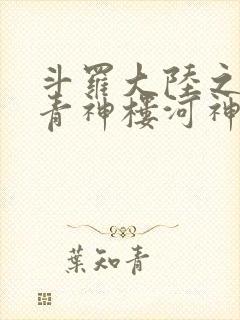 斗羅大陸之
青神樓河神
葉知青